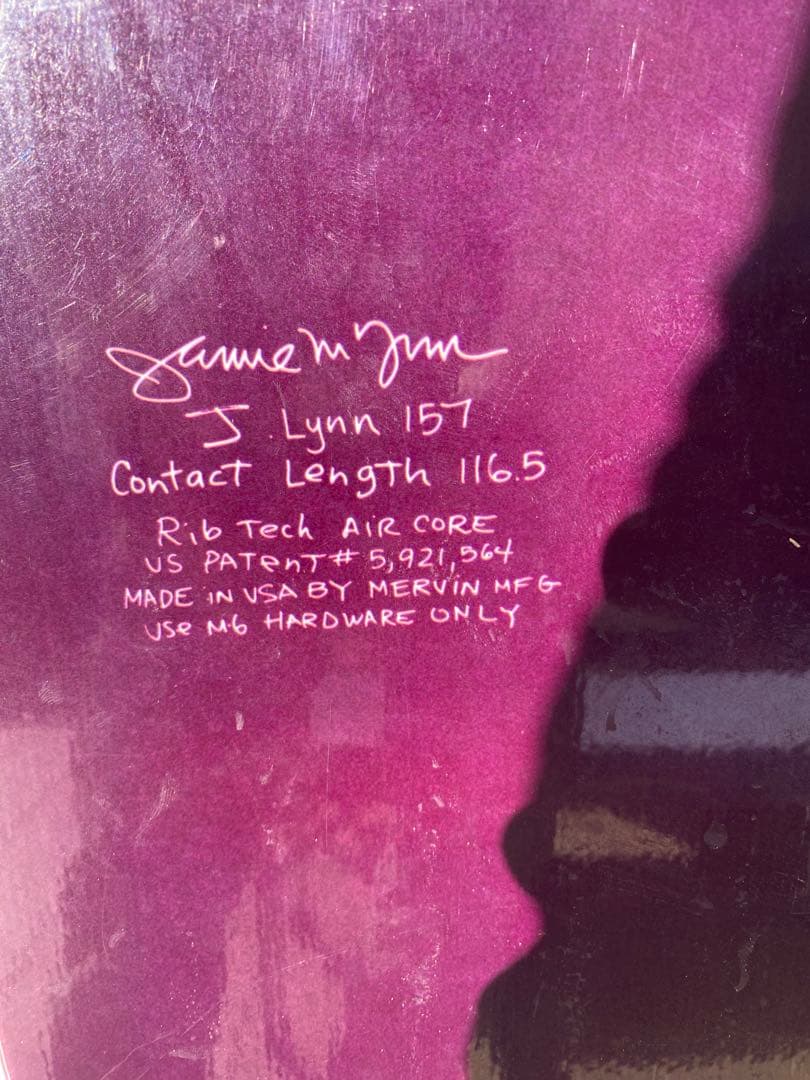 Jamie M Lynn
J. Lynn 157
Contact Length 116.5
Rib Tech AIR CORE
US PATENT # 5,921,564
MADE IN USA BY MERVIN MFG
USE M6 HARDWARE ONLY